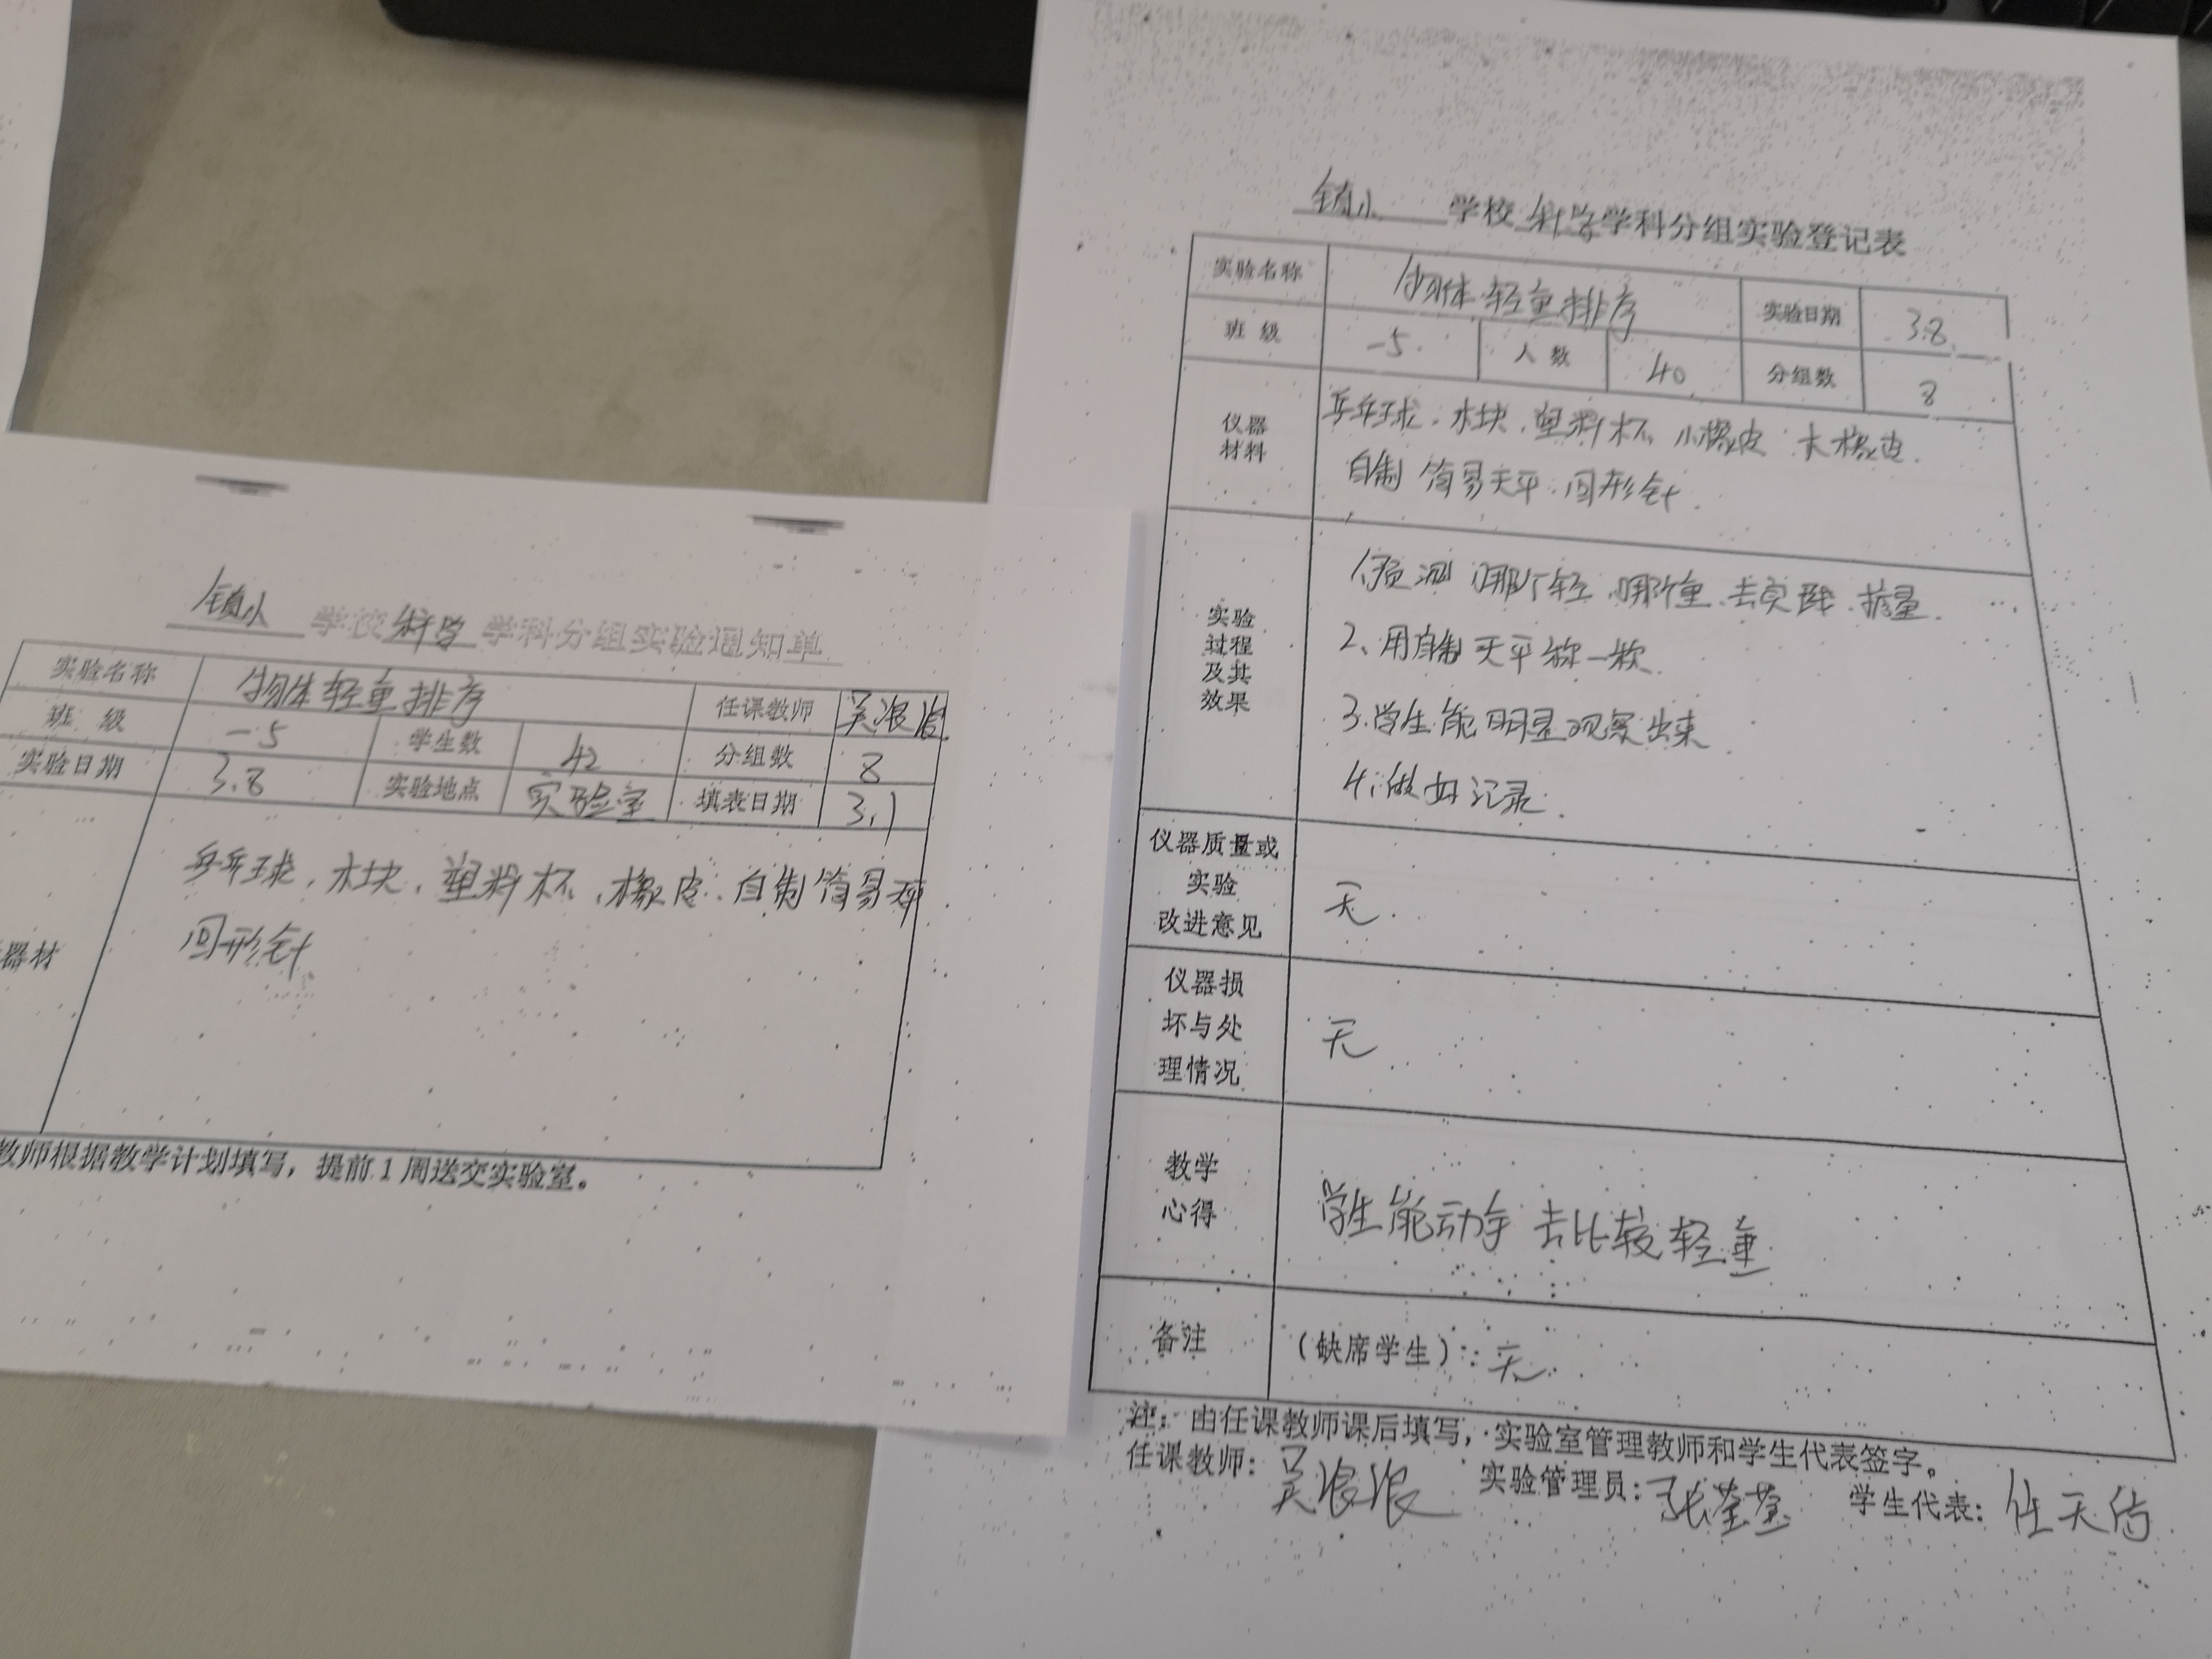 镇小 学校 科学 学科分组实验通知单
实验名称 物体轻重排序 任课教师 吴浪浪
班 级 一5 学生数 42 分组数 8
实验日期 3.8 实验地点 实验室 填表日期 3.1
器材
乒乓球、木块、塑料杯、橡皮、自制简易天平
回形针
教师根据教学计划填写，提前1周送交实验室。
镇小 学校 科学 学科分组实验登记表
实验名称 物体轻重排序 实验日期 3.8
班 级 一5 人 数 40 分组数 8
仪器
材料
乒乓球、木块、塑料杯、小橡皮 大橡皮
自制简易天平 回形针
实验
过程
及其
效果
1.预测 哪个轻、哪个重、去实践、掂量
2、用自制天平称一称
3.学生能明显观察出来
4.做好记录
仪器质量或
实验
改进意见
无
仪器损
坏与处
理情况
无
教学
心得
学生能动手去比较轻重
备注 （缺席学生）：无
注：由任课教师课后填写，实验室管理教师和学生代表签字。
任课教师：吴浪浪 实验管理员：张莹莹 学生代表：任天佑